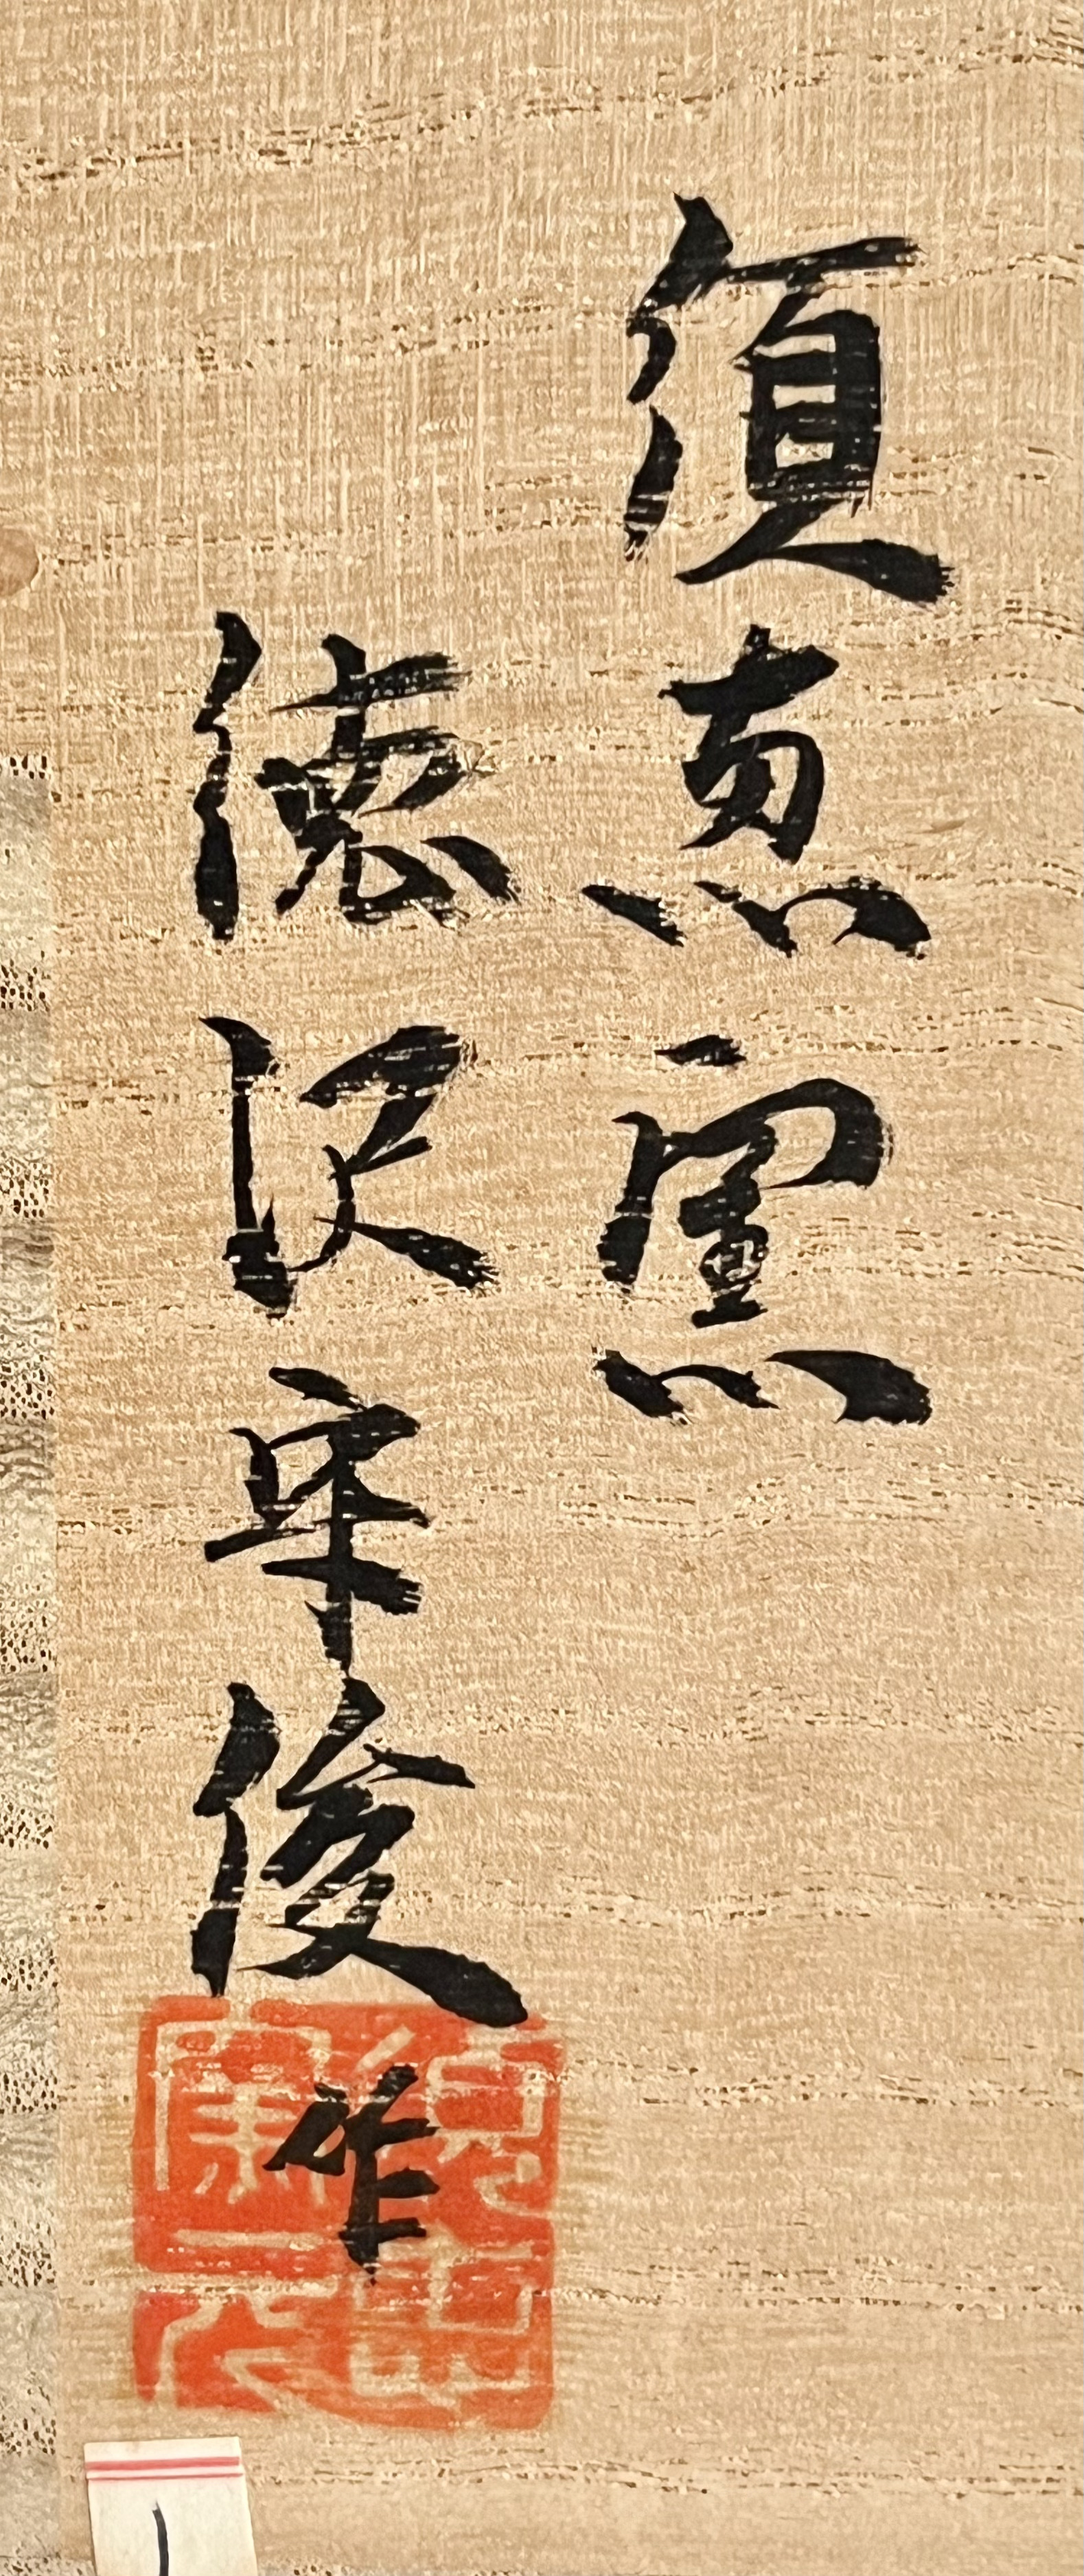 須恵窯
徳沢守俊作